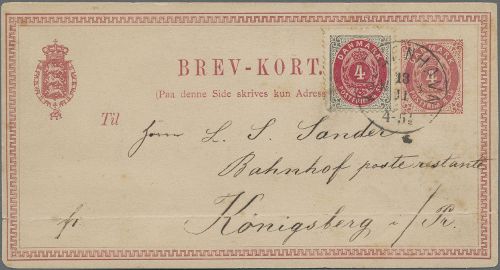 BREV-KORT.
(Paa denne Side skrives kun Adress
DANMARK
4
POSTFRIM
4
13
4-5
Til
Herrn L. S. Sander
Bahnhof poste restante
fr. Königsberg i/Pr.